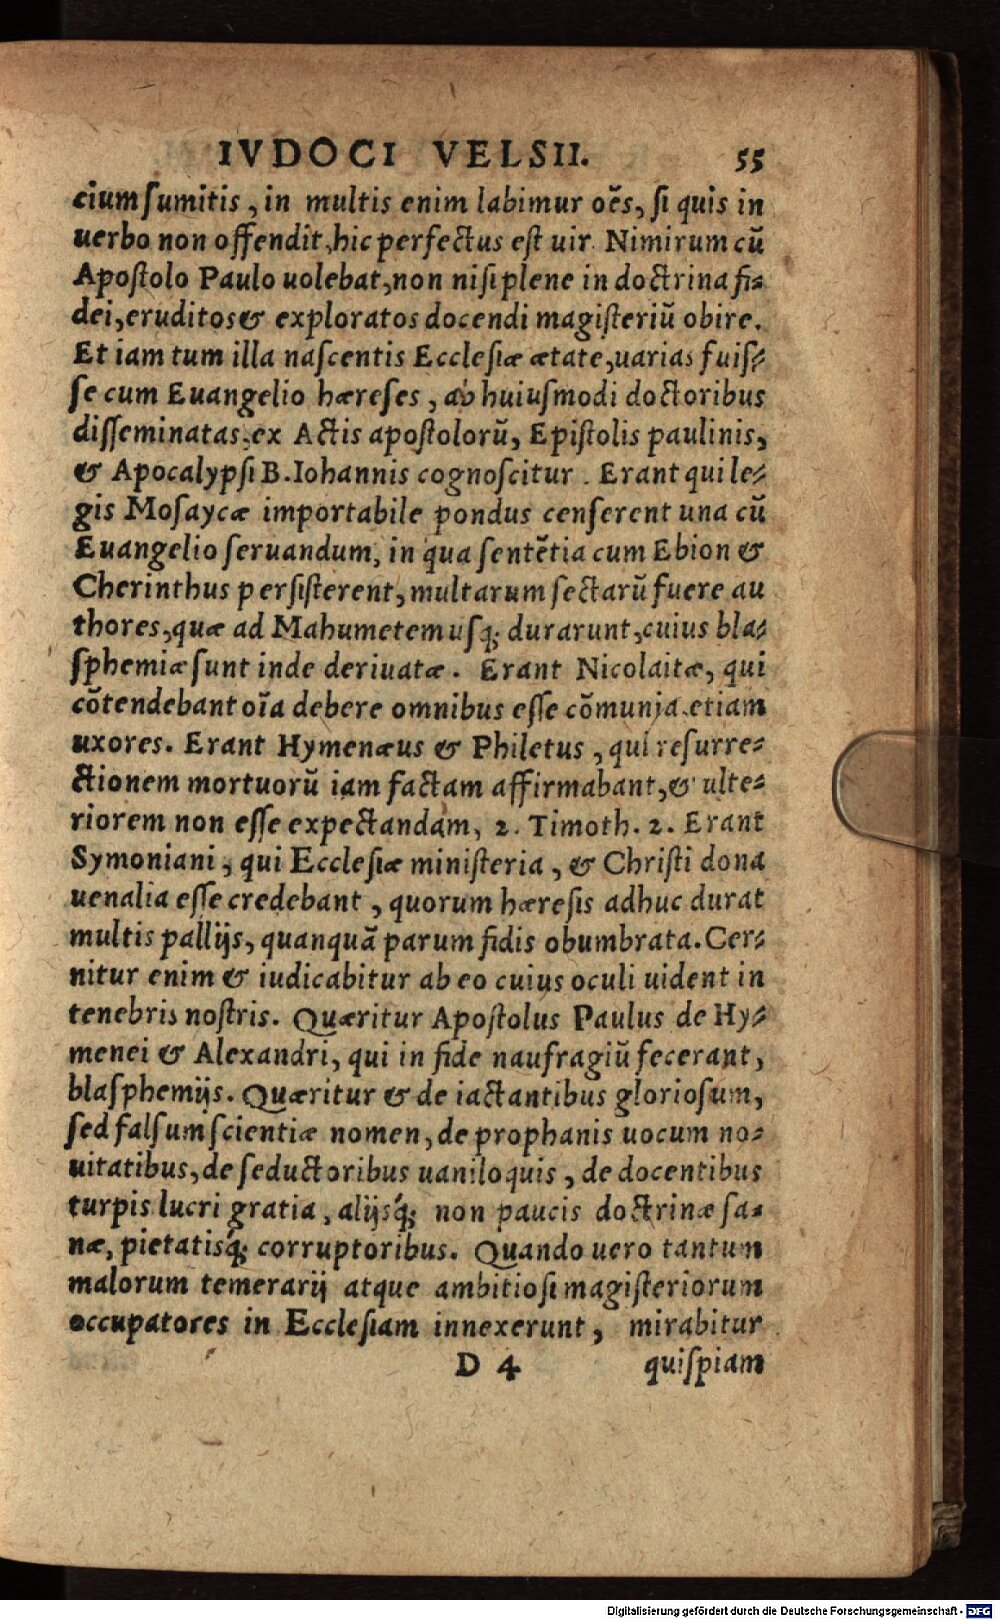 IVDOCI VELSII. 55
cium ſumitis, in multis enim labimur oẽs, ſi quis in
uerbo non offendit, hic perfectus eſt uir. Nimirum cũ
Apoſtolo Paulo uolebat, non niſi plene in doctrina fi-
dei, eruditos & exploratos docendi magiſteriũ obire.
Et iam tum illa naſcentis Eccleſiæ ætate, uarias fuiſ-
ſe cum Euangelio hæreſes, ab huiuſmodi doctoribus
diſſeminatas, ex Actis apoſtolorũ, Epiſtolis paulinis,
& Apocalypſi B. Iohannis cognoſcitur. Erant qui le-
gis Moſaycæ importabile pondus cenſerent una cũ
Euangelio ſeruandum, in qua ſentẽtia cum Ebion &
Cherinthus perſiſterent, multarum ſectarũ fuere au
thores, quæ ad Mahumetem uſq; durarunt, cuius bla-
ſphemiæ ſunt inde deriuatæ. Erant Nicolaitæ, qui
cõtendebant oĩa debere omnibus eſſe cõmunia, etiam
uxores. Erant Hymenæus & Philetus, qui reſurre-
ctionem mortuorũ iam factam affirmabant, & ulte-
riorem non eſſe expectandam, 2. Timoth. 2. Erant
Symoniani, qui Eccleſiæ miniſteria, & Chriſti dona
uenalia eſſe credebant, quorum hæreſis adhuc durat
multis pallijs, quanquã parum fidis obumbrata. Cer-
nitur enim & iudicabitur ab eo cuius oculi uident in
tenebris noſtris. Quæritur Apoſtolus Paulus de Hy-
menei & Alexandri, qui in fide naufragiũ fecerant,
blaſphemijs. Quæritur & de iactantibus glorioſum,
ſed falſum ſcientiæ nomen, de prophanis uocum no-
uitatibus, de ſeductoribus uaniloquis, de docentibus
turpis lucri gratia, alijsq́; non paucis doctrinæ ſa-
næ, pietatisq́; corruptoribus. Quando uero tantum
malorum temerarij atque ambitioſi magiſteriorum
occupatores in Eccleſiam innexerunt, mirabitur
D 4 quiſpiam
Digitalisierung gefördert durch die Deutsche Forschungsgemeinschaft - DFG